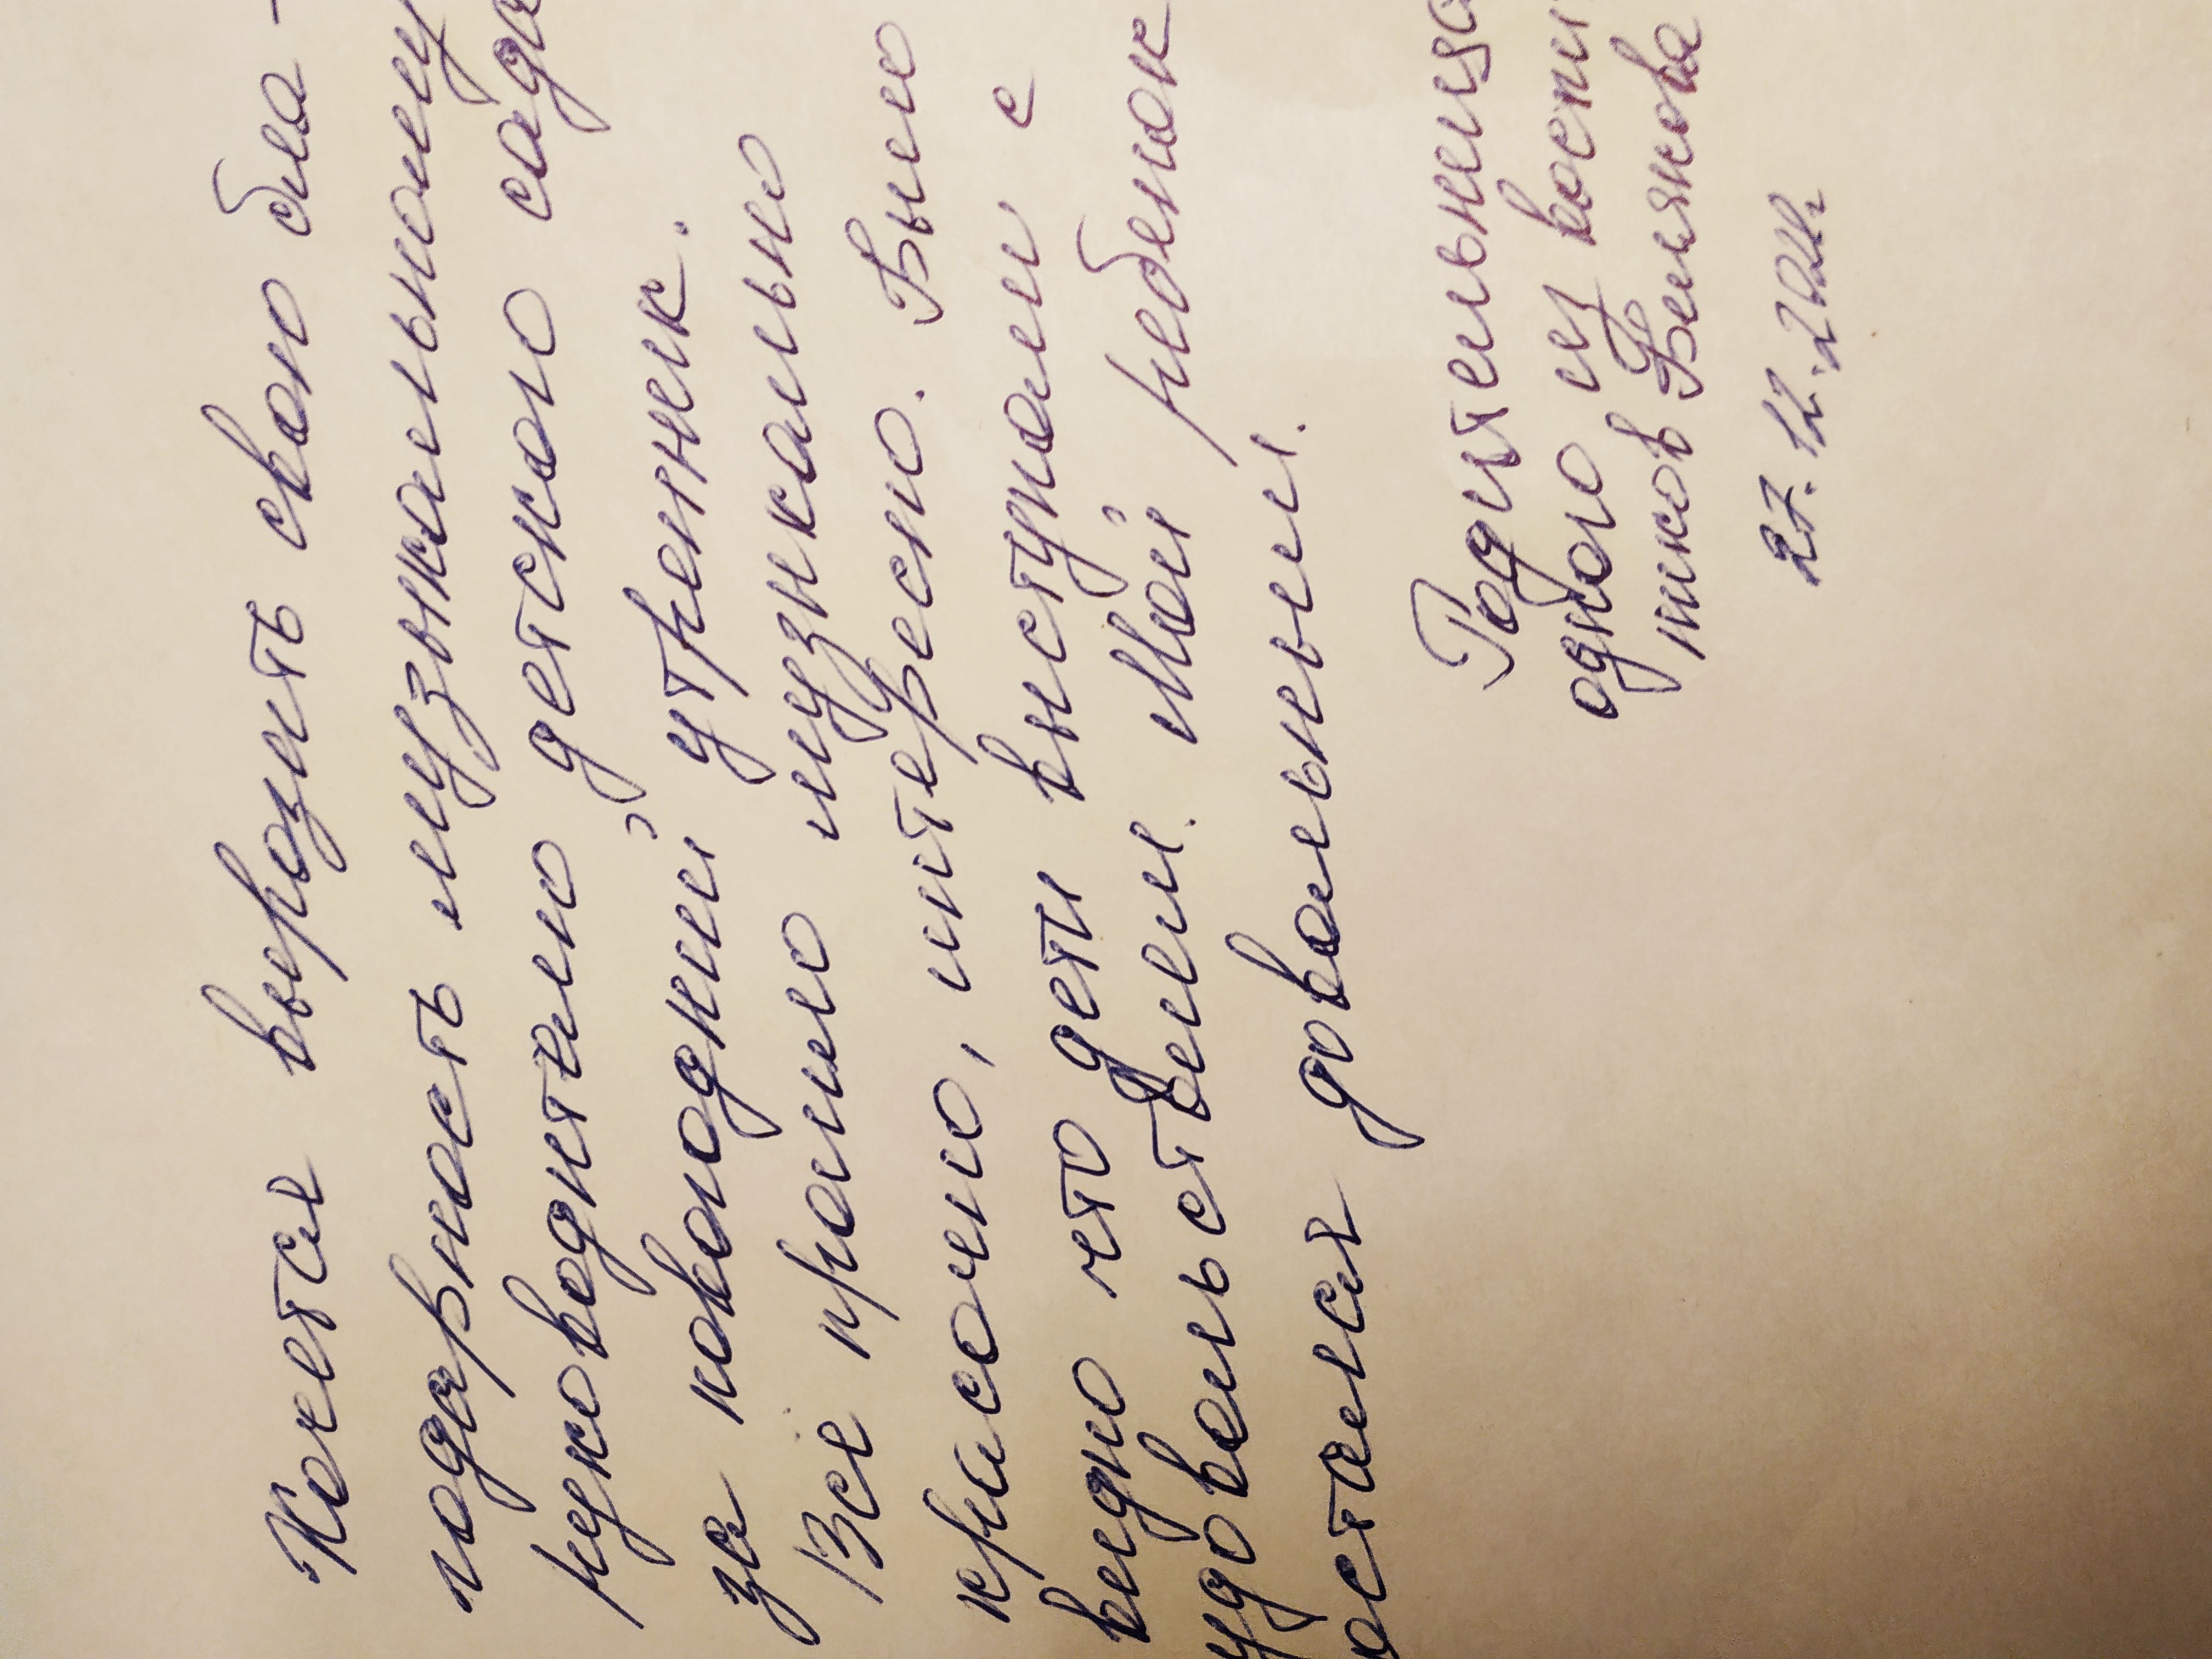 Хочется выразить свою бла-
годарность музыкальному
руководителю детского сада
за новогодний утренник.
Всё прошло музыкально
красочно, интересно. Было
видно что дети выступали с
удовольствием. Мой ребенок
остался довольным.
Родительница
одного из воспит
танников Белякова
27.12.2021г